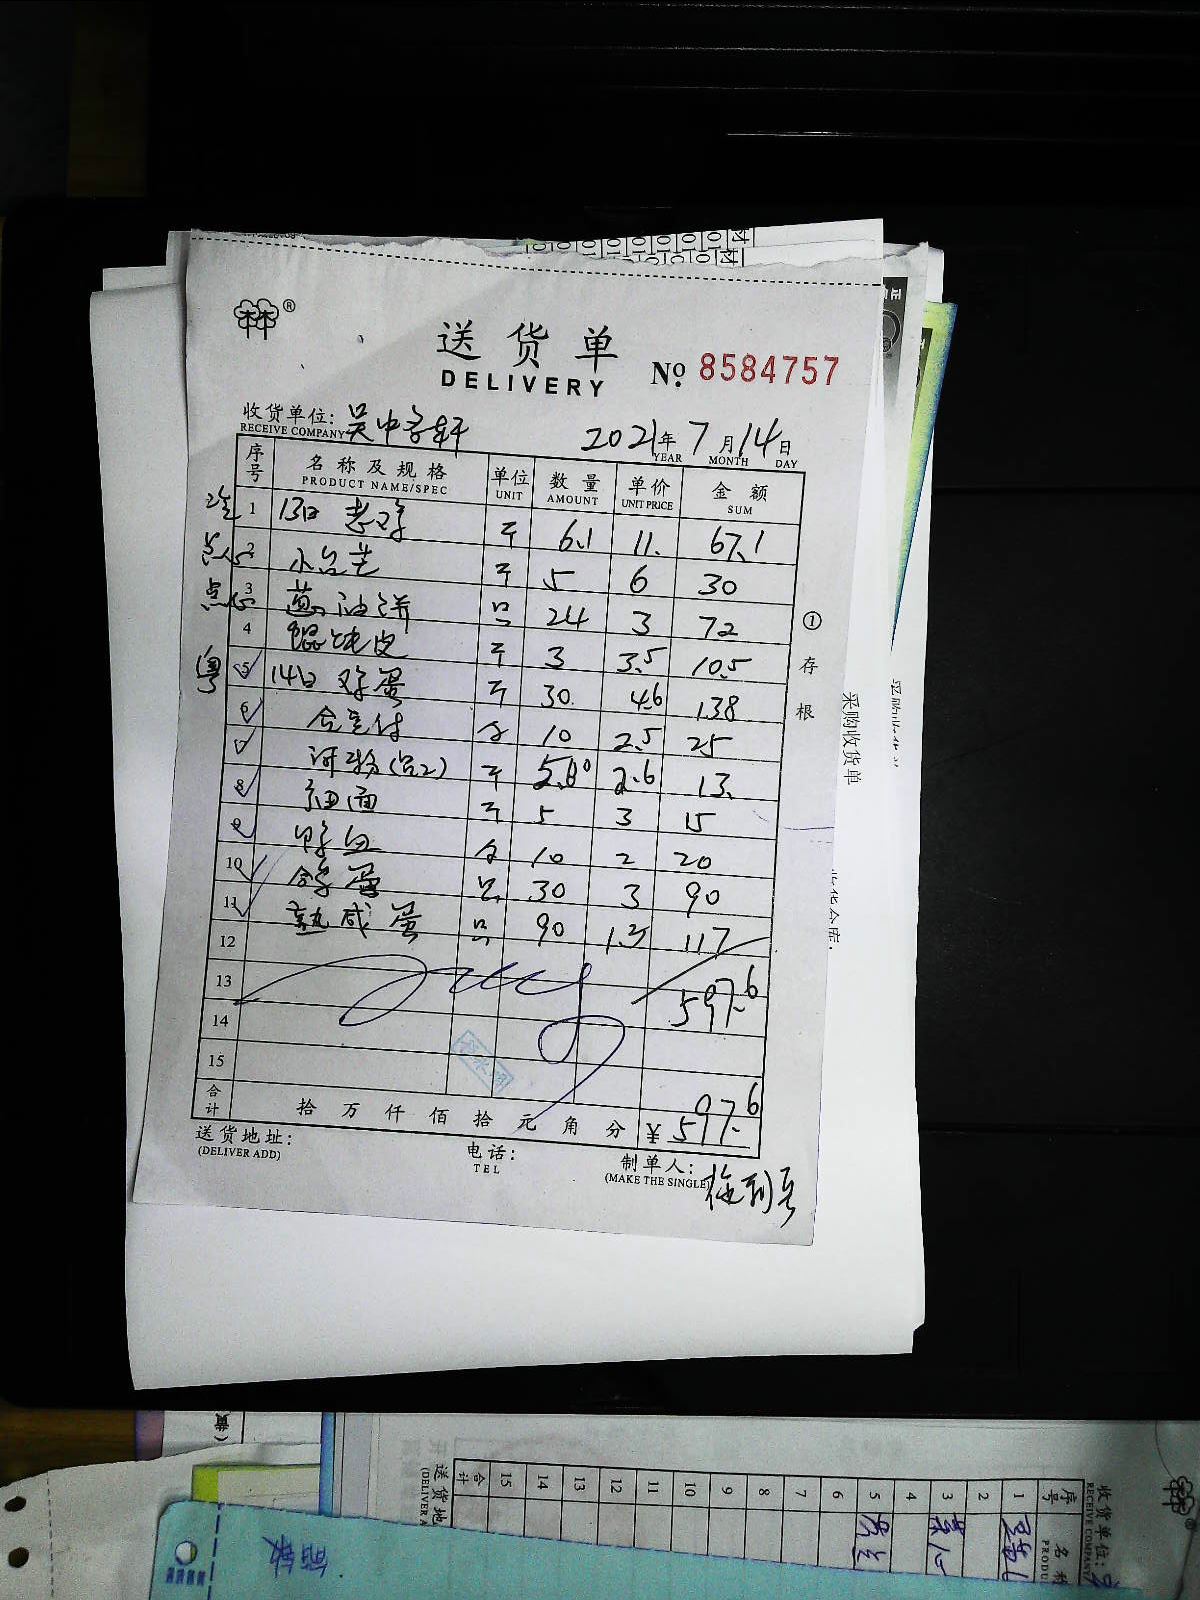 送货单
DELIVERY
No. 8584757
收货单位: 吴中
RECEIVE COMPANY
2021年7月14日
YEAR MONTH DAY
序号 名称及规格 单位 数量 单价 金额
PRODUCT NAME/SPEC UNIT AMOUNT UNIT PRICE SUM
1 13日 6.1 11. 67.1
点心 2 5 6 30
点心 3 葱油饼 只 24 3 72
4 馄饨皮 3 3.5 10.5
粤 5 14日 鸡蛋 30 4.6 138
6 10 2.5 25
7 河粉 2.6 13.
8 细面 5 3 15
9 鸭血 10 2 20
10 鸽蛋 只 30 3 90
11 熟咸蛋 只 90 1.3 117
12
13 597.6
14
15
合计 拾万仟佰拾元角分 ¥ 597.6
送货地址:
(DELIVER ADD)
电话:
TEL
制单人:
(MAKE THE SINGLE)
①存根
采购收货单
收货单位:
RECEIVE COMPANY
序号
1
2
3
4
5
6
7
8
9
10
11
12
13
14
15
合计
送货地